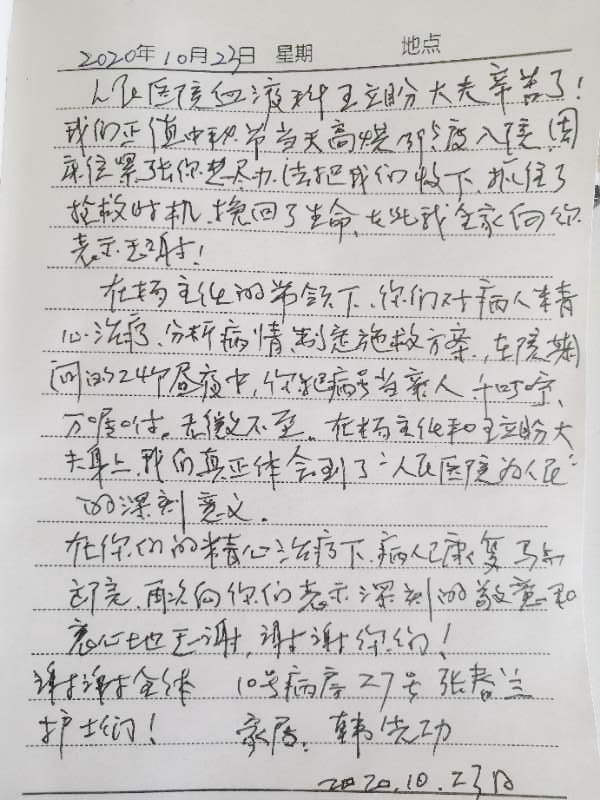 2020年10月23日 星期 地点
人民医院血液科王立盼大夫辛苦了!
我们正值中秋节当天高烧39.5度入院,因
床位紧张你想尽办法把我们收下,抓住了
抢救时机,挽回了生命,在此我全家向你
表示感谢!
在杨主任的带领下,你们对病人精
心治疗,分析病情,制定施救方案,在医期
间的24个昼夜中,你把病号当亲人,千叮咛、
万嘱咐,无微不至。在杨主任和王立盼大
夫身上,我们真正体会到了“人民医院为人民”
的深刻意义。
在你们的精心治疗下,病人已康复马上
出院,再次向你们表示深刻的敬意和
衷心地感谢,谢谢你们!
谢谢全体 10号病房27号 张春兰
护士们! 家属,韩先功
2020.10.23日